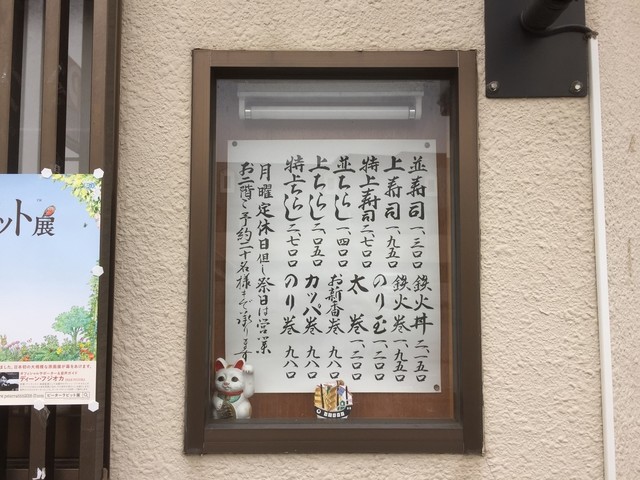 並寿司 一、三〇〇
上寿司 一、九五〇
特上寿司 二、七〇〇
並ちらし 一、四〇〇
上ちらし 二、〇五〇
特上ちらし 二、七〇〇
鉄火丼 二、一五〇
鉄火巻 一、九五〇
のり玉 一、二〇〇
太巻 一、二〇〇
お新香巻 九八〇
カッパ巻 九八〇
のり巻 九八〇
月曜定休日但し祭日は営業
お二階ご予約二十名様まで承ります
ット展
ディーン・フジオカ
ピーターラビット展